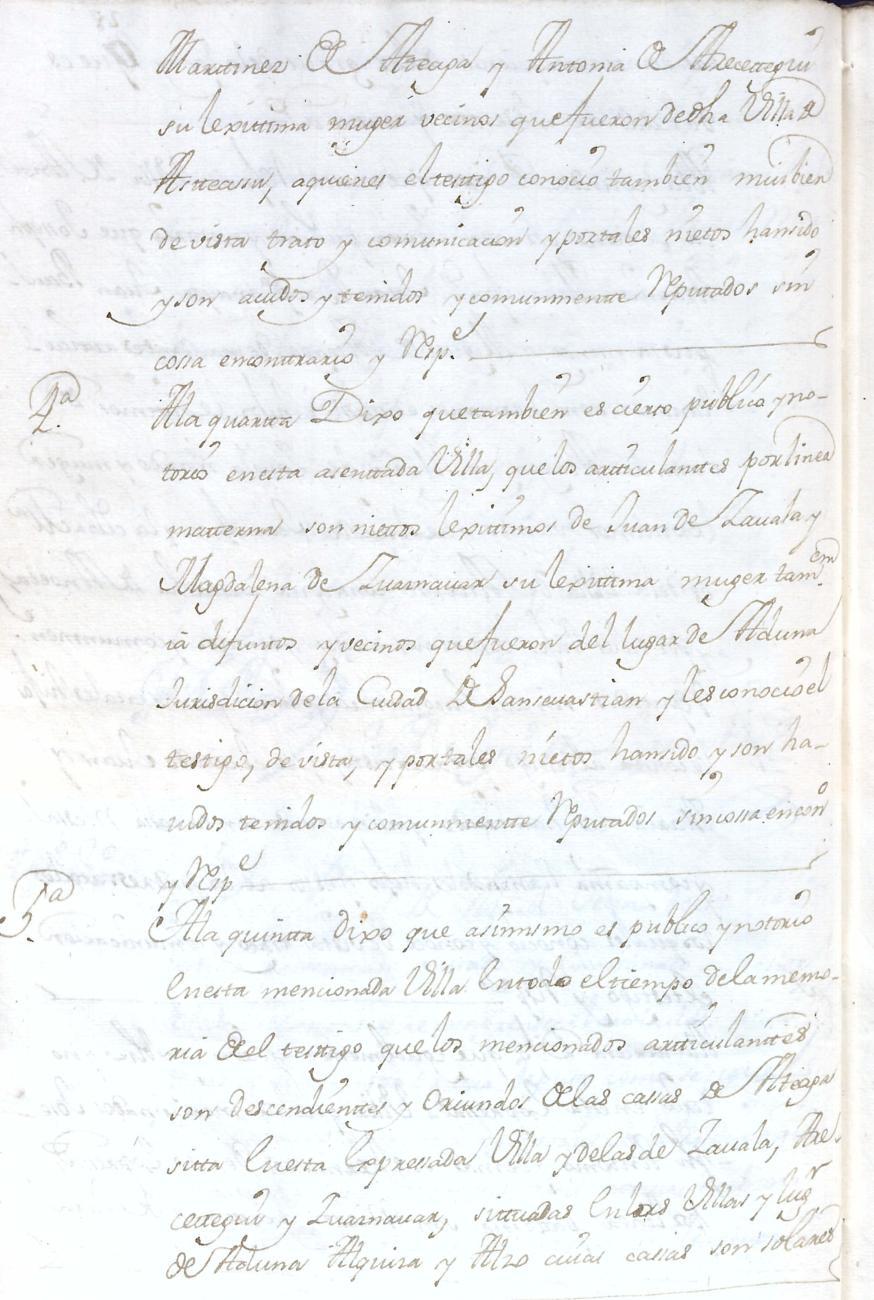 Martinez de Atteaga y Antonia de Arecettegui
su lexittima muger vecinos que fueron de dha Villa de
Astteasu, aquienes el testtigo conocio tambien mui bien
de vista trato y comunicacion y por tales nietos han sido
y son auidos y tenidos y comunmentte Reputados sin
cossa en conttrario y Resp.e
4.a Ala quartta Dixo que tambien es cierto publico y no-
torio en esta asenttada Villa, que los artticulanttes por linea
matterna son niettos lexittimos de Juan de Zavala y
Magdalena de Zuarnauar su lexittima muger tam.em
ia difuntos y vecinos que fueron del lugar de Aduna
Jurisdicion de la Ciudad de San seuastian y les conocio el
testigo, de vista, y por tales nietos han sido y son ha-
uidos tenidos y comunmentte Reputados sin cossa en con.o
y Resp.e
5.a Ala quintta dixo que asimismo es publico y notorio
En esta mencionada Villa En todo el tiempo de la memo-
ria de el testtigo que los mencionados artticulanttes
son descendienttes y Oriundos de las cassas de Atteaga
sitta En esta Expressada Villa y de las de Zavala, Are
cettegui y Zuarnauar, sittuadas En las Villas y lug.r
de Aduna Alquiza y Alzo cuias cassas son solares